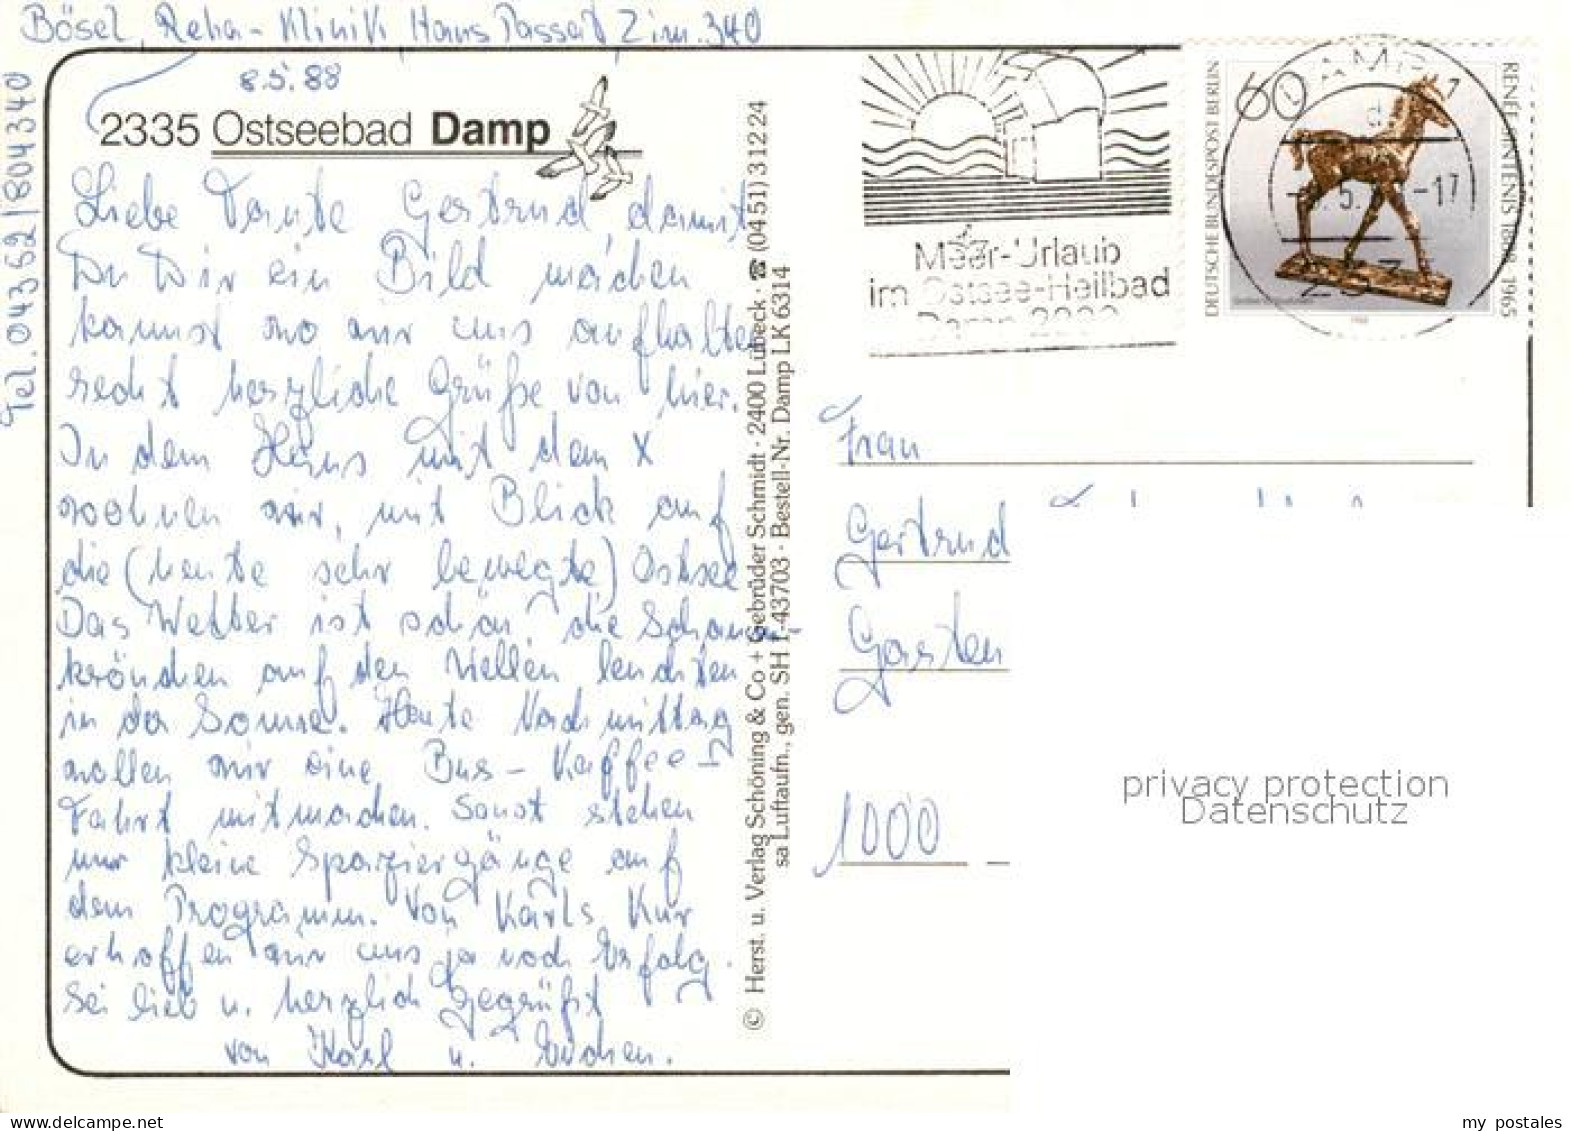 Bösel, Reha-Klinik Haus Passat Zim. 340
Tel. 04352/804340
8.5.88
2335 Ostseebad Damp
Liebe Tante Gertrud, damit
Du Dir ein Bild machen
kannst wo wir uns aufhalten
recht herzliche Grüße von hier.
In dem Haus mit dem X
wohnen wir, mit Blick auf
die (heute sehr bewegte) Ostsee
Das Wetter ist schön, die Schaum-
krönchen auf den Wellen leuchten
in der Sonne. Heute Nachmittag
wollen wir eine Bus-Kaffee-
Fahrt mitmachen. Sonst stehen
nur kleine Spaziergänge auf
dem Programm. Von Karls Kur
erhoffen wir uns ja noch Erfolg.
Sei lieb u. herzlich gegrüßt
von Karl u. Evchen.
© Herst. u. Verlag Schöning & Co + Gebrüder Schmidt · 2400 Lübeck · ☎ (04 51) 3 12 24
sa Luftaufn., gen. SH 1-43703 · Bestell-Nr. Damp LK 6314
Meer-Urlaub
im Ostsee-Heilbad
Damp 2000
DEUTSCHE BUNDESPOST BERLIN
60
RENÉE SINTENIS 1888-1965
1988
DAMP
-17
Frau
Gertrud
Garten
1000
privacy protection
Datenschutz
my postales